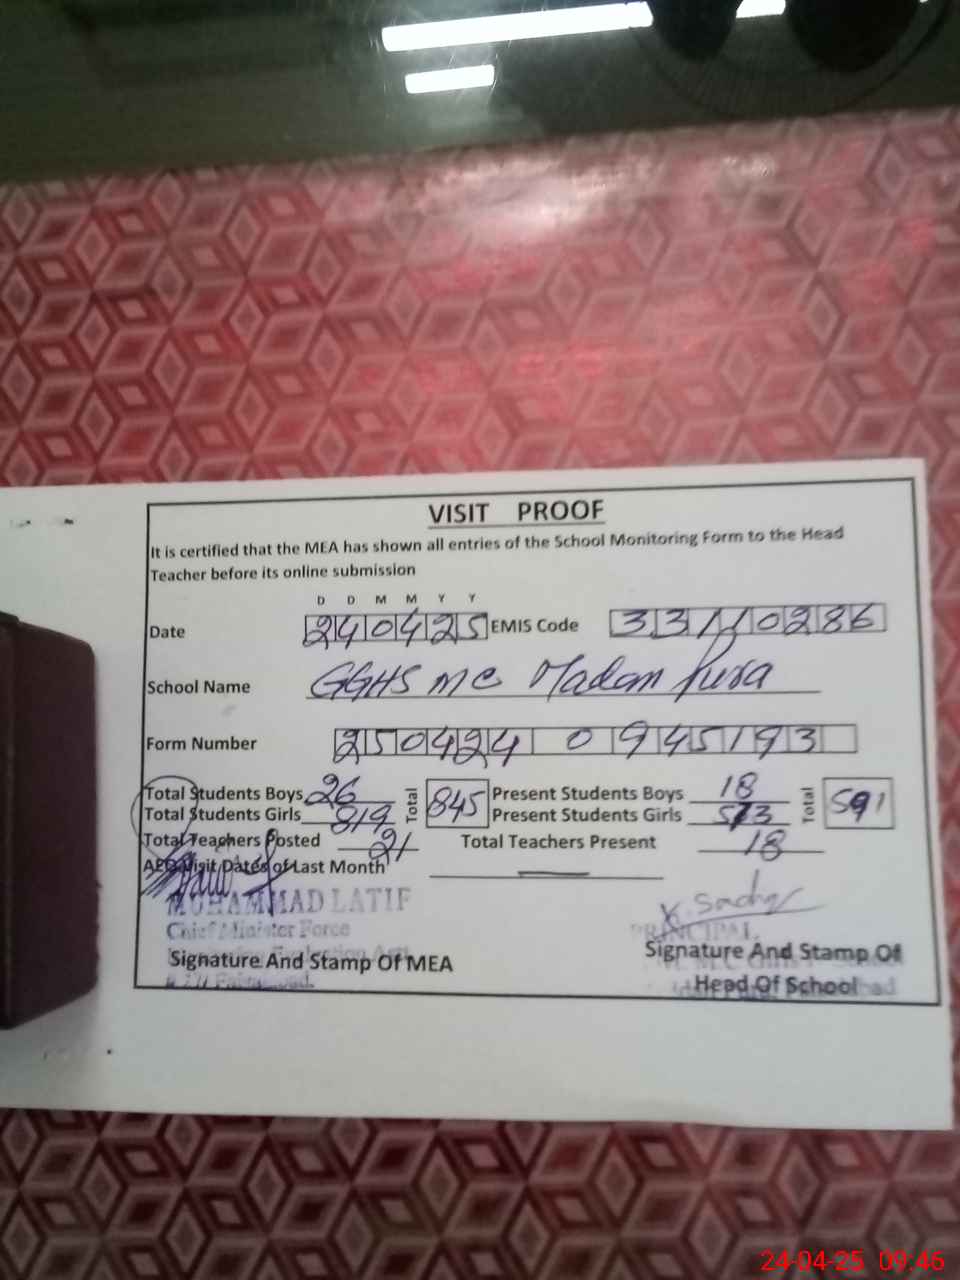 VISIT PROOF
It is certified that the MEA has shown all entries of the School Monitoring Form to the Head
Teacher before its online submission
D D M M Y Y
Date 240425 EMIS Code 33110286
School Name GGHS MC Madan Pura
Form Number 250424 0945193
Total Students Boys 26 Total 845 Present Students Boys 18 Total 591
Total Students Girls 819 Present Students Girls 573
Total Teachers Posted 21 Total Teachers Present 18
AEO Visit Dates of Last Month —
MUHAMMAD LATIF
Chief Minister Force
PRINCIPAL
Signature And Stamp Of MEA Signature And Stamp Of
Head Of School
24-04-25 09:46